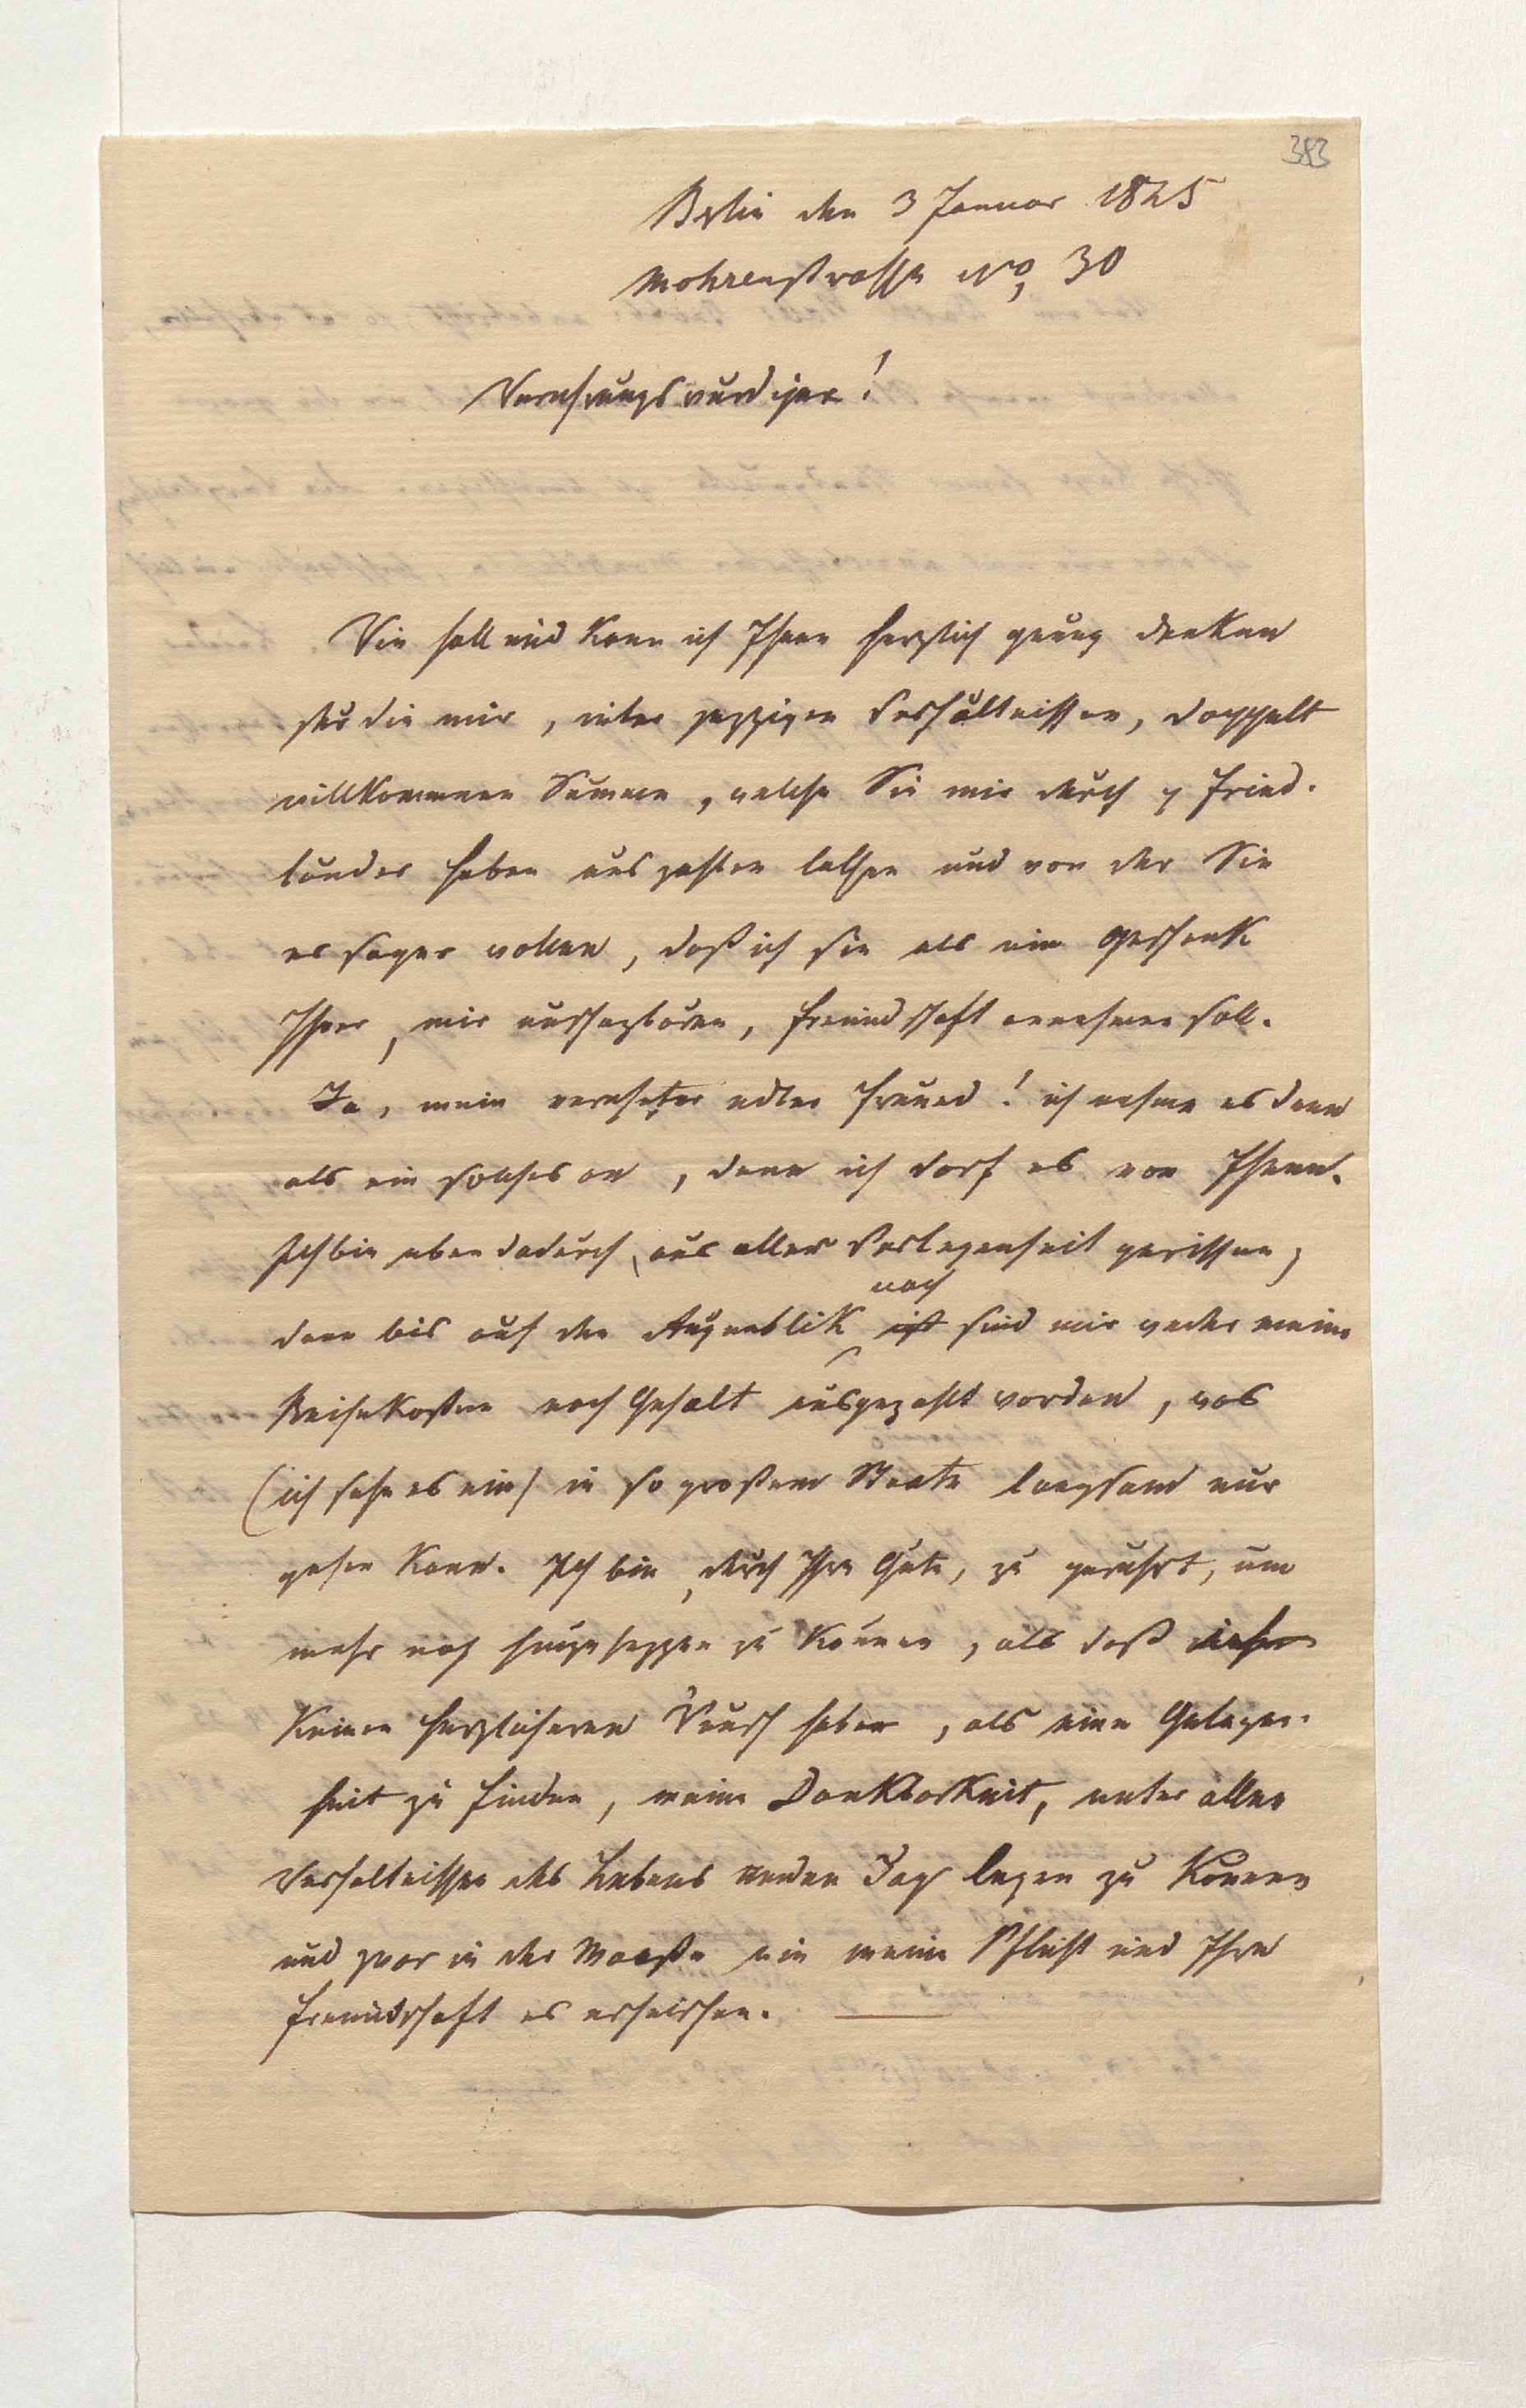 383
Berlin den 3 Januar 1825
Mohrenstrasse No, 30
Verehrungswürdiger!
Wie soll und kann ich Ihnen herzlich genug danken
für die mir, unter jezzigen Verhältnissen, doppelt
willkommene Summe, welche Sie mir durch Fried-
länder haben auszahlen lassen und von der Sie
es sogar wollen, daß ich sie als ein Geschenk
Ihrer, mir unschazbaren, Freundschaft annehmen soll.
Ja, mein verehrter edler Freund! ich nehme es denn
als ein solches an, denn ich darf es von Ihnen.
Ich bin eben dadurch, aus aller Verlegenheit gerissen,
denn bis auf den Augenblik noch sind mir weder meine
Reisekosten noch Gehalt ausgezahlt worden, was
(ich sehe es ein) in so großem Staate langsam nur
gehen kann. Ich bin, durch Ihre Güte, zu gerührt, um
mehr noch hinzusezzen zu können, als daß
keinen herzlicheren Wunsch habe, als eine Gelegen-
heit zu finden, meine Dankbarkeit, unter allen
Verhältnissen des Lebens an den Tag legen zu können
und zwar in der Maaße wie meine Pflicht und Ihre
Freundschaft es erheischen. —